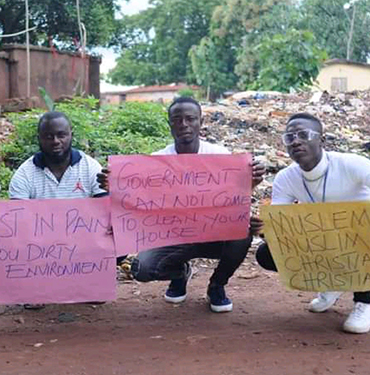 ST IN PAIN
OU DIRTY
ENVIRONMENT
GOVERNMENT
CAN NOT COME
TO CLEAN YOUR
HOUSE!
MUSLEM
MUSLIM
CHRISTIA
CHRISTIA